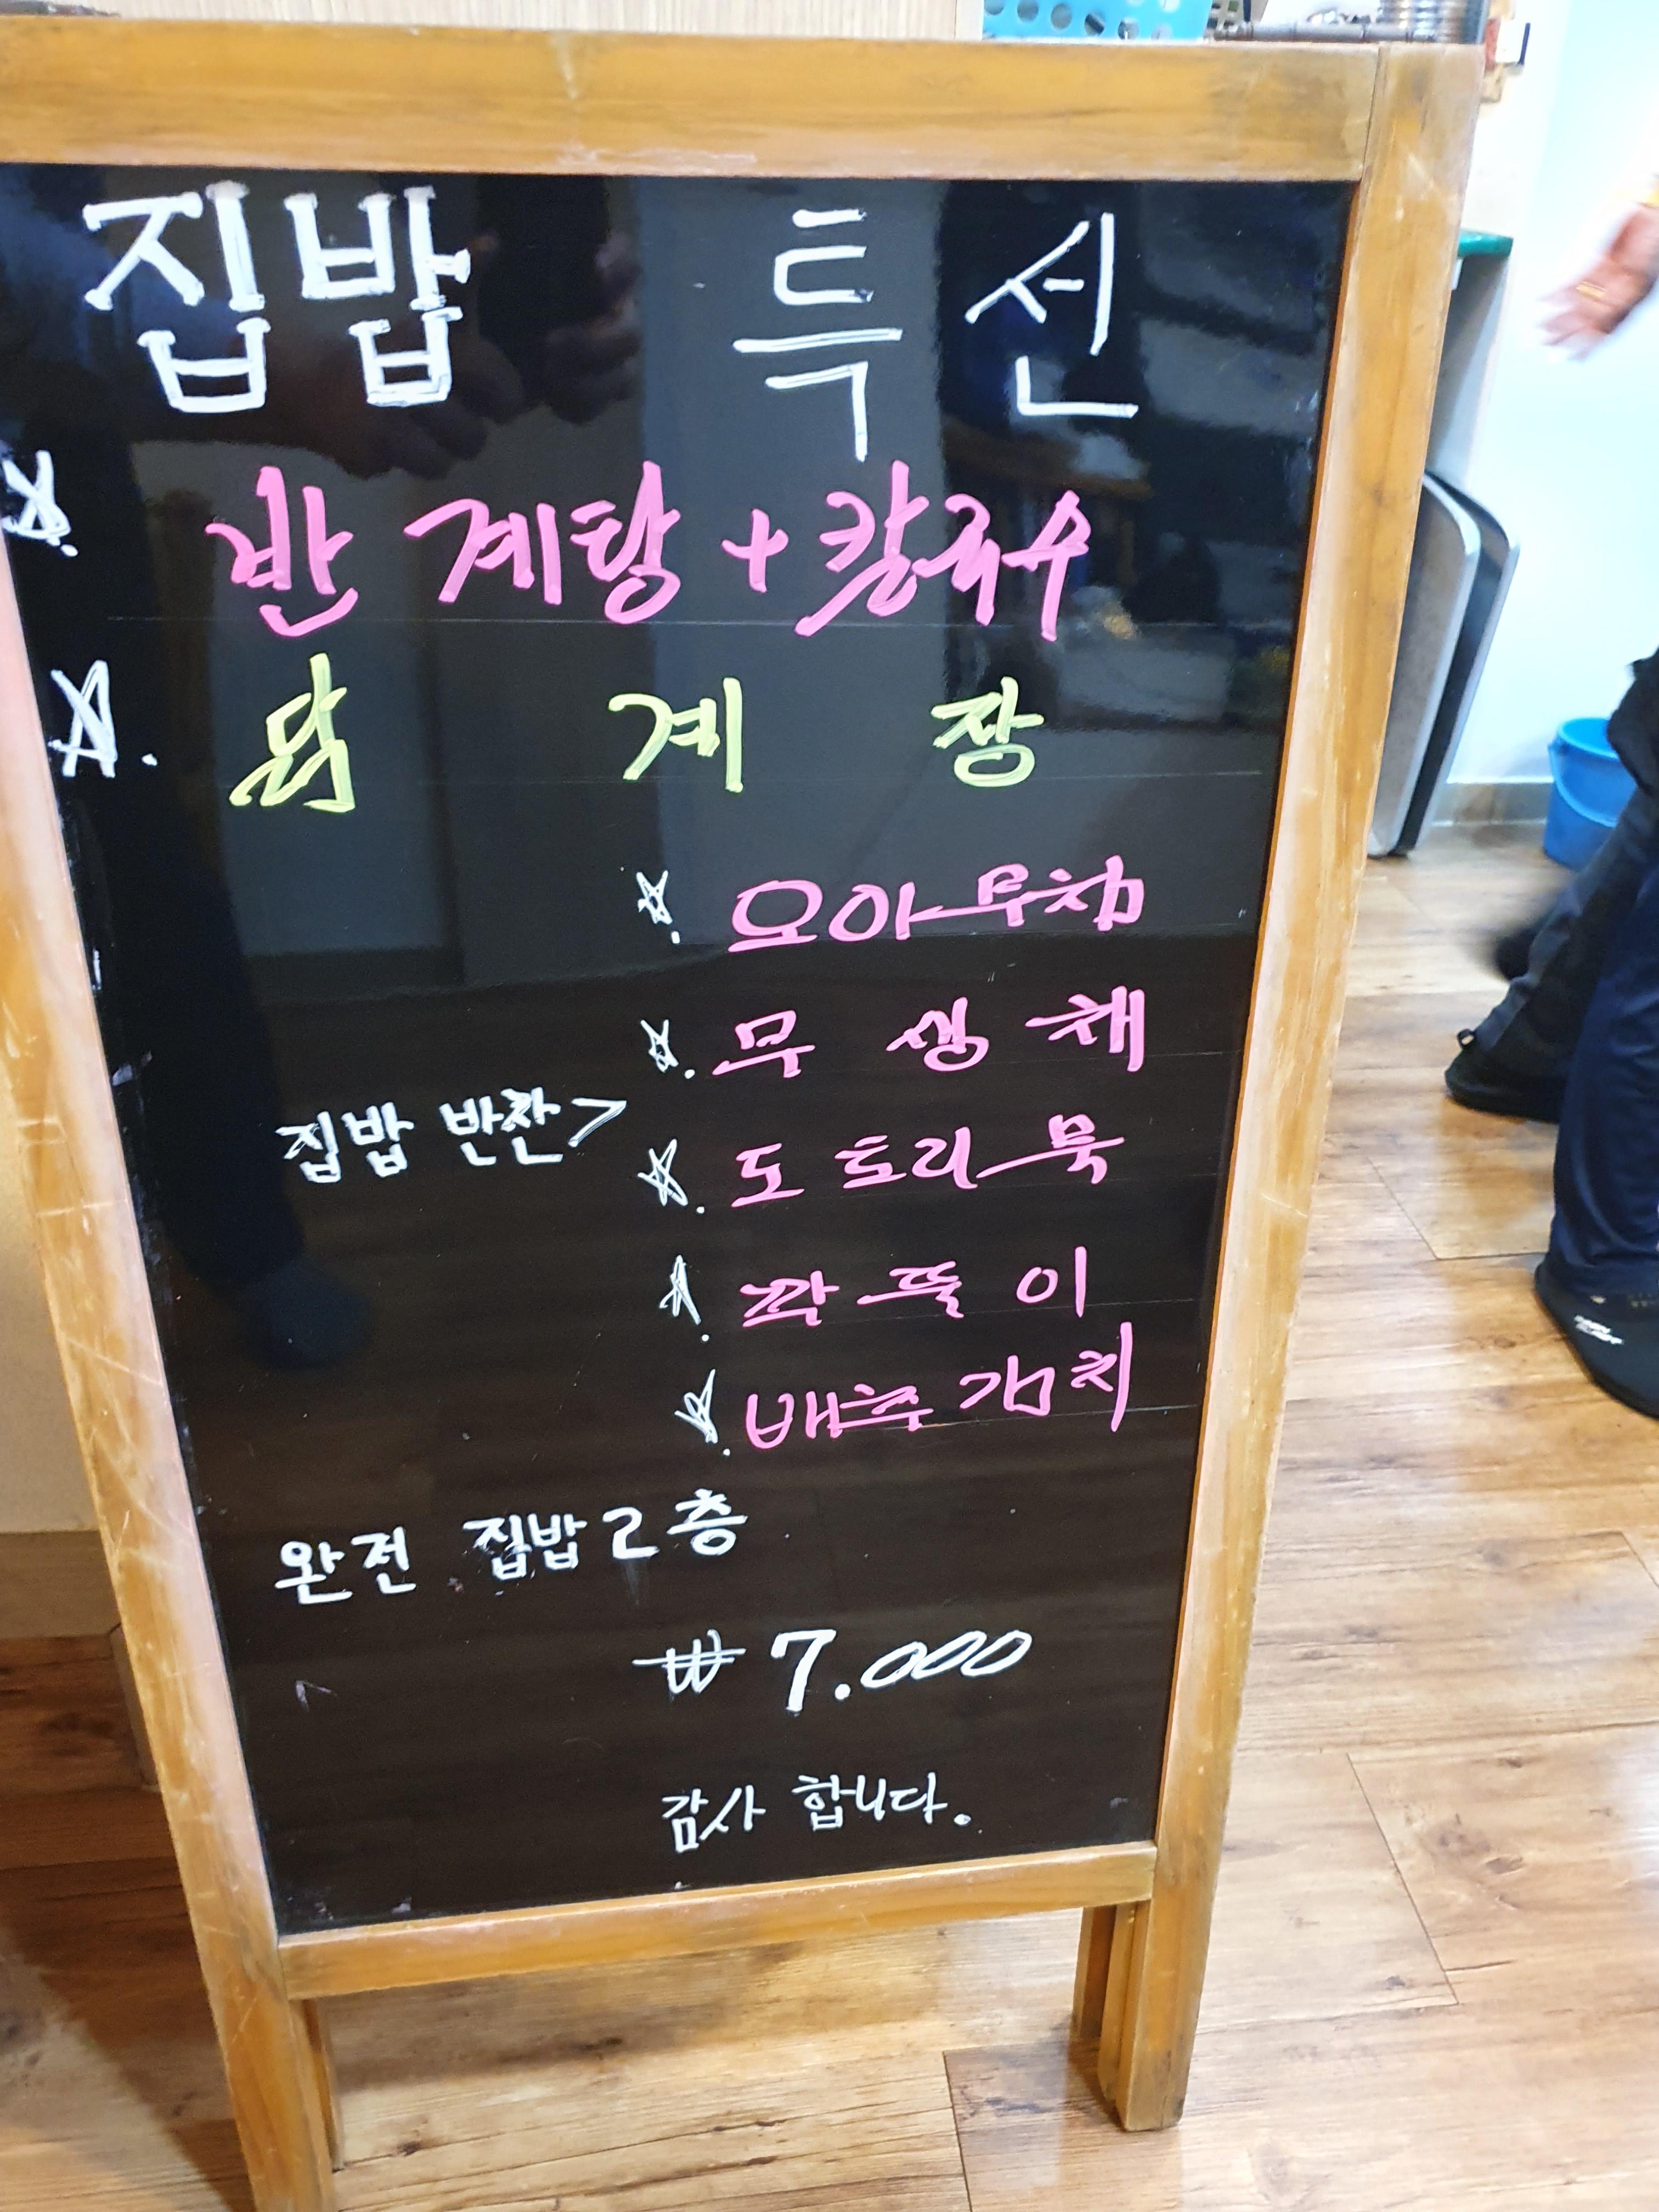 집밥 특선
☆. 반계탕+칼국수
☆. 닭계장
☆. 오이무침
☆. 무생채
집밥 반찬> ☆. 도토리묵
☆. 깍뚝이
☆. 배추김치
완전 집밥 2층
₩ 7.000
감사 합니다.